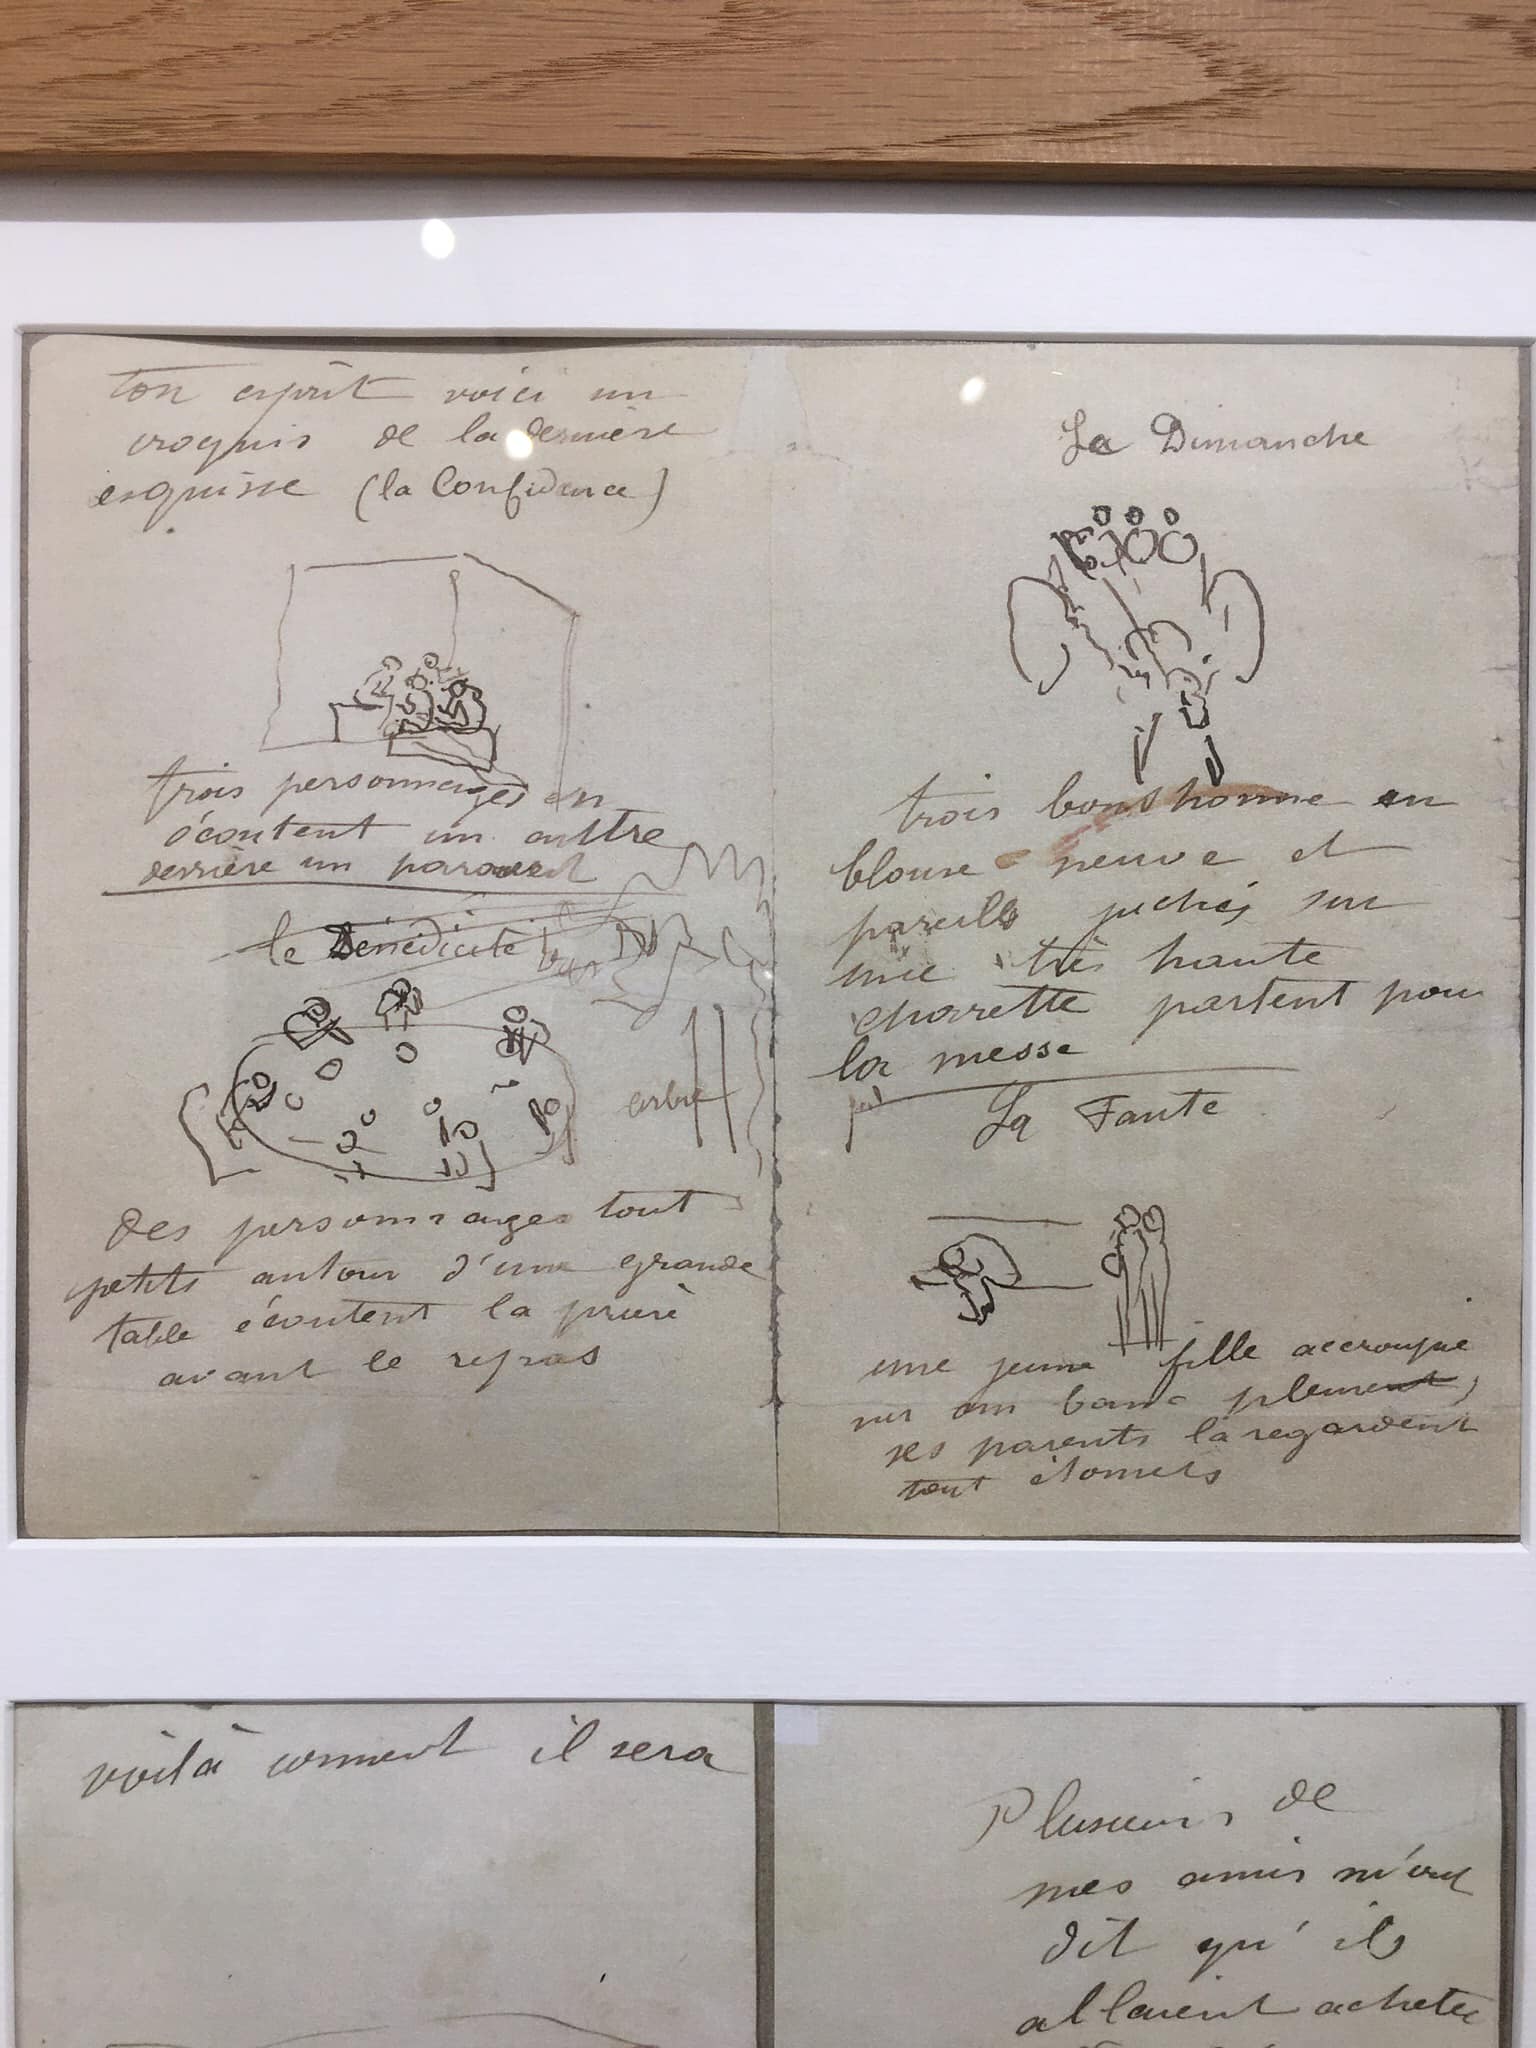 ton esprit voici un
croquis de la dernière
esquisse (la Confidence)
trois personnages en
écoutent un auttre
derrière un paravent
le Bénédicité
arbre
des personnages tout
petits autour d'une grande
table écoutent la prière
avant le repas
Le Dimanche
trois bonshomme en
blouse neuve et
pareille juchés sur
une très haute
charette partent pour
la messe
La Faute
une jeune fille accroupie
sur un banc pleure
ses parents la regardent
tout étonnés
voilà comment il sera
Plusieurs de
mes amis m'ont
dit qu'ils
allaient acheter